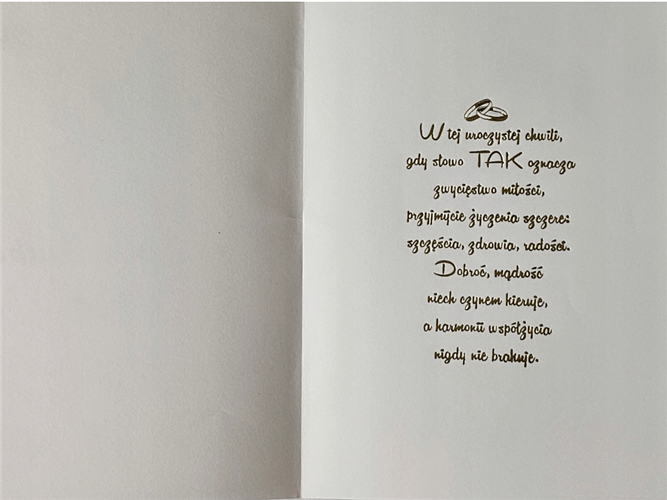 W tej uroczystej chwili,
gdy słowo TAK oznacza
zwycięstwo miłości,
przyjmijcie życzenia szczere:
szczęścia, zdrowia, radości.
Dobroć, mądrość
niech czynem kieruje,
a harmonii współżycia
nigdy nie brakuje.